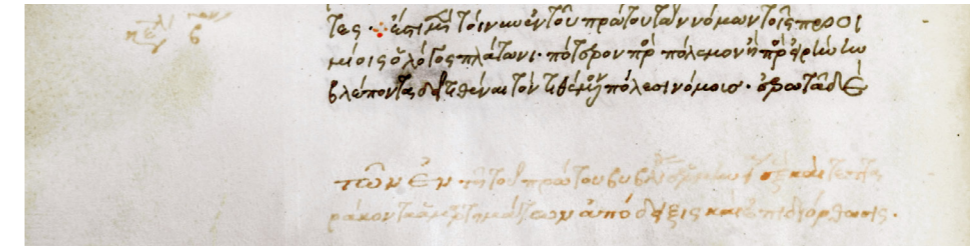 τες · ἔστι μὲν τοίνυν ἐν τοῦ πρώτου τῶν νόμων τοῖς προοι
μίοις ὁ λόγος πλάτωνι · πότερον πρὸς πόλεμον ἢ πρὸς εἰρήνην
βλέποντας δεῖ τιθέναι τὸν τιθέμενον πόλεσι νόμους · ἐρωτᾶ δὲ
τῶν ἐν τῇ τοῦ πρώτου βυβλίου καὶ τεττα
ράκοντα ἁμαρτημάτων ἀπόδειξις καὶ ἐπιδιόρθωσις .